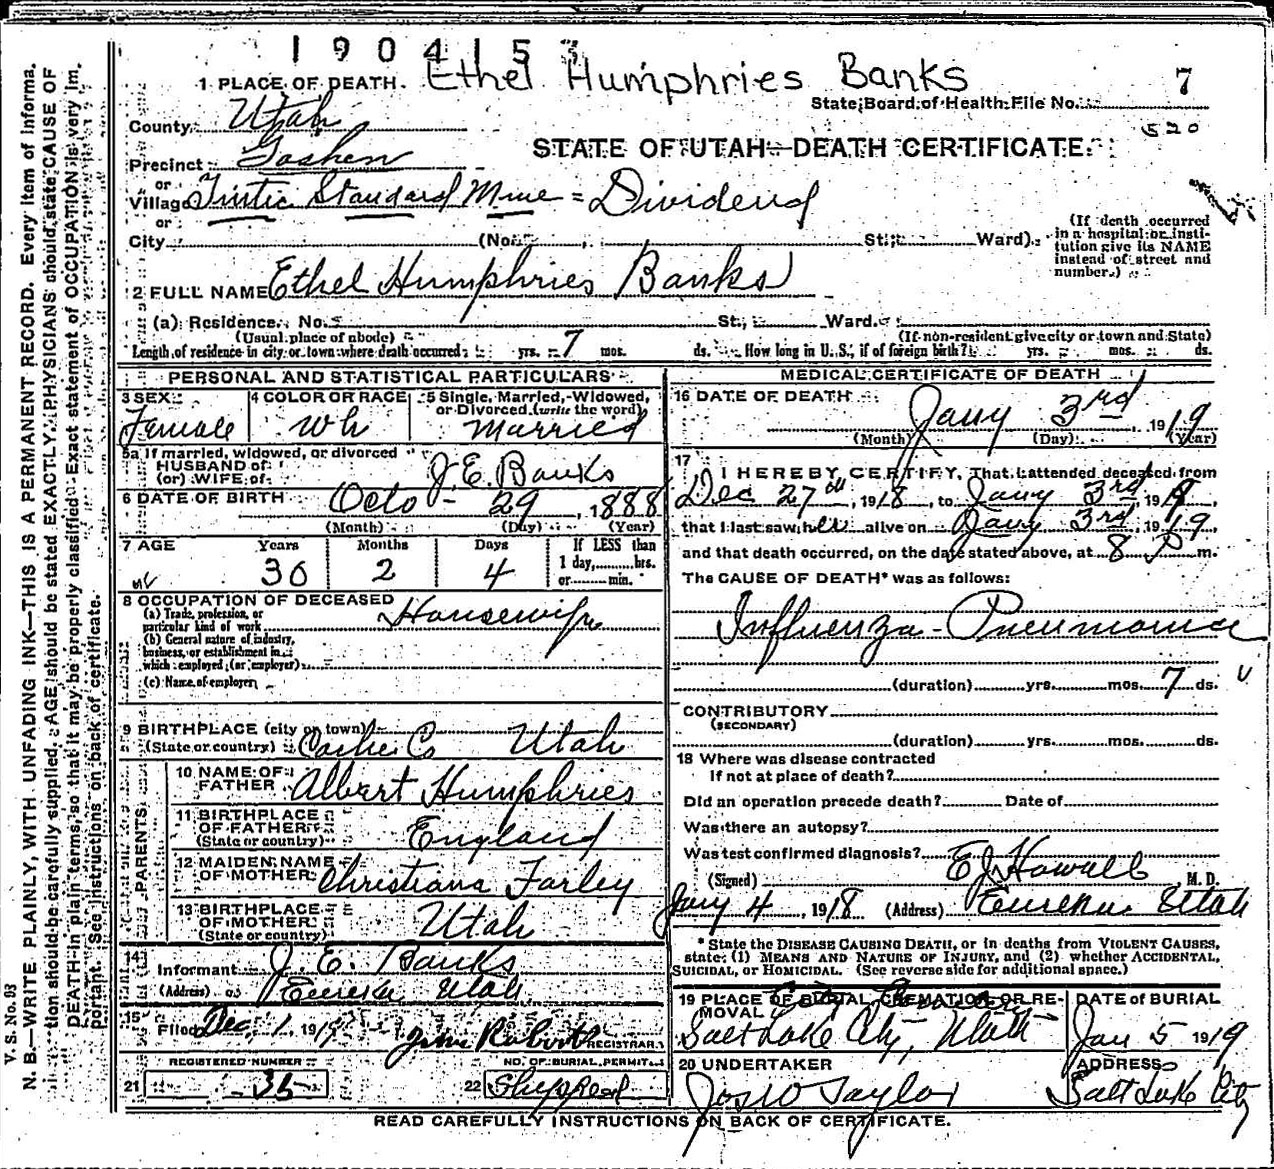 190415
1 PLACE OF DEATH. Ethel Humphries Banks 7
State Board of Health File No.
County Utah
520
STATE OF UTAH—DEATH CERTIFICATE
Precinct Goshen
or
Village Tintic Standard Mine = Dividend
or
City (No. St.; Ward)
(If death occurred in a hospital or institution give its NAME instead of street and number.)
2 FULL NAME Ethel Humphries Banks
(a) Residence. No. St., Ward.
(Usual place of abode) (If non-resident give city or town and State)
Length of residence in city or town where death occurred yrs. 7 mos. ds. How long in U. S., if of foreign birth? yrs. mos. ds.
PERSONAL AND STATISTICAL PARTICULARS
3 SEX 4 COLOR OR RACE 5 Single, Married, Widowed, or Divorced (write the word)
Female Wh Married
5a If married, widowed, or divorced
HUSBAND of
(or) WIFE of J. E. Banks
6 DATE OF BIRTH Octo - 29, 1888
(Month) (Day) (Year)
7 AGE Years Months Days If LESS than 1 day, hrs. or min.
30 2 4
8 OCCUPATION OF DECEASED
(a) Trade, profession, or particular kind of work Housewife
(b) General nature of industry, business, or establishment in which employed (or employer)
(c) Name of employer
9 BIRTHPLACE (city or town)
(State or country) Cache Co Utah
PARENTS
10 NAME OF FATHER Albert Humphries
11 BIRTHPLACE OF FATHER (State or country) England
12 MAIDEN NAME OF MOTHER Christiana Farley
13 BIRTHPLACE OF MOTHER (State or country) Utah
14 Informant J. E. Banks
(Address) Eureka Utah
15 Filed Dec, 1 1919 John Roberts REGISTRAR
REGISTERED NUMBER NO. OF BURIAL PERMIT
21 36 22 Shipped
MEDICAL CERTIFICATE OF DEATH
16 DATE OF DEATH Jany 3rd, 1919
(Month) (Day) (Year)
17 I HEREBY CERTIFY, That I attended deceased from
Dec 27th, 1918, to Jany 3rd 1919,
that I last saw her alive on Jany 3rd, 1919,
and that death occurred, on the date stated above, at 8 P m.
The CAUSE OF DEATH* was as follows:
Influenza - Pneumonia
(duration) yrs. mos. 7 ds.
CONTRIBUTORY
(SECONDARY)
(duration) yrs. mos. ds.
18 Where was disease contracted
if not at place of death?
Did an operation precede death? Date of
Was there an autopsy?
Was test confirmed diagnosis?
(Signed) E J Howell M. D.
Jany 4, 1918 (Address) Eureka Utah
* State the DISEASE CAUSING DEATH, or in deaths from VIOLENT CAUSES,
state: (1) MEANS AND NATURE OF INJURY, and (2) whether ACCIDENTAL,
SUICIDAL, or HOMICIDAL. (See reverse side for additional space.)
19 PLACE OF BURIAL, CREMATION OR REMOVAL DATE of BURIAL
Salt Lake City, Utah Jan 5 1919
20 UNDERTAKER ADDRESS
Jos W Taylor Salt Lake City
READ CAREFULLY INSTRUCTIONS ON BACK OF CERTIFICATE.
V. S. No. 93
N. B.—WRITE PLAINLY, WITH UNFADING INK—THIS IS A PERMANENT RECORD. Every item of information should be carefully supplied. AGE should be stated EXACTLY. PHYSICIANS should state CAUSE OF DEATH in plain terms, so that it may be properly classified. Exact statement of OCCUPATION is very important. See instructions on back of certificate.